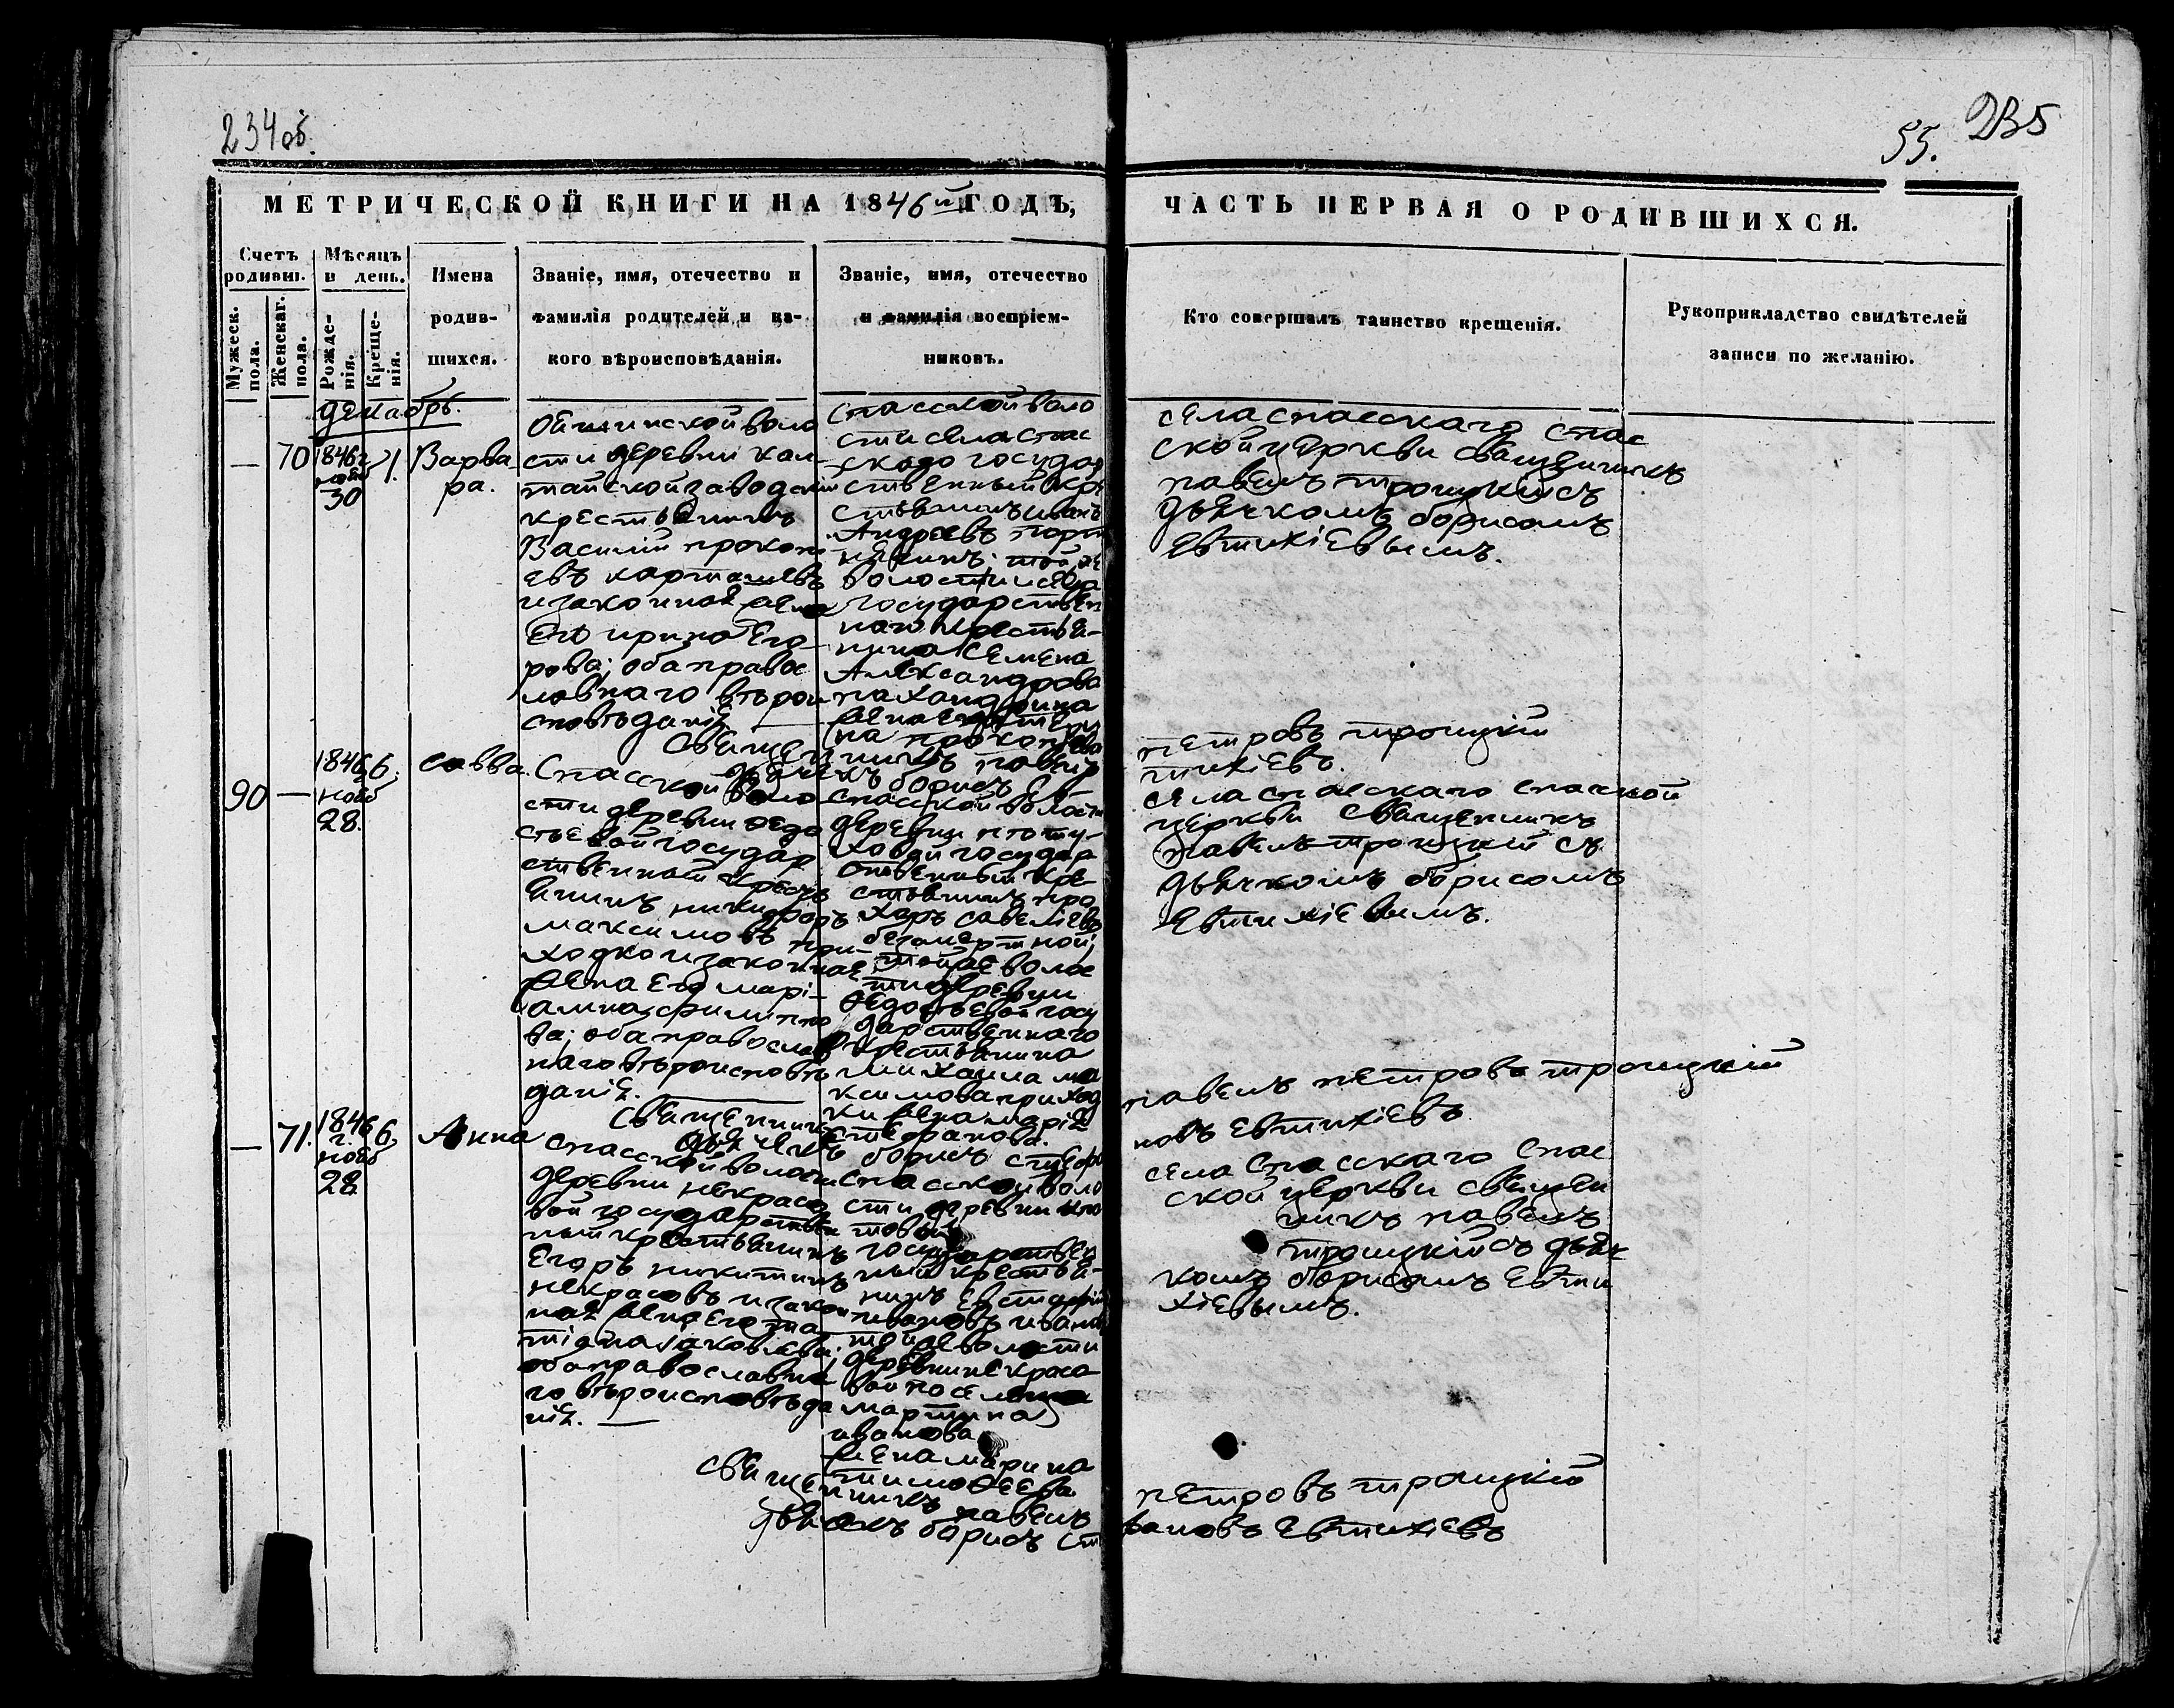 234об.
55. 235
МЕТРИЧЕСКОЙ КНИГИ НА 1846й ГОДЪ,
ЧАСТЬ ПЕРВАЯ О РОДИВШИХСЯ.
Счетъ родивш.
Мужеск. пола.
Женскаг. пола.
Мѣсяцъ и день.
Рожде-
нія.
Креще-
нія.
Имена
родив-
шихся.
Званіе, имя, отечество и
фамилія родителей и ка-
кого вѣроисповѣданія.
Званіе, имя, отечество
и фамилія воспріем-
никовъ.
Кто совершалъ таинство крещенія.
Рукоприкладство свидѣтелей
записи по желанію.
декабрь.
— 70
1846 г
нояб
30
1.
Варва
ра.
воло
сти деревни
крестьянинъ
Василій прокопі
евъ
и законная жена
Его ирина Его
рова; оба правос
лавнаго вѣрои
сповѣданія
Спасской воло
сти села Спас
скаго государ
ственный кре
стьянинъ иванъ
Андреевъ
той же
волости села
государствен
наго крестья-
нина Семена
Александрова
жена Екатери
на прокопьева
села спаскаго спас
ской церкви священникъ
павелъ троицкій съ
дьячкомъ борисомъ
Евтихіевымъ.
Священникъ павелъ петровъ троицкій
дьячекъ борисъ Евтихіевъ.
90 —
1846
нояб
28.
6.
савва.
Спасской воло
сти деревни
государ
ственный кресть
янинъ никифоръ
максимовъ при-
ходко и законная
жена Его марі-
амна филиппо
ва; оба православ
наго вѣроисповѣ
данія.
спасской волости
деревни
ховой государ
ственный кре-
стьянинъ про
харъ савеліевъ
той же волос
ти деревни
государственнаго
крестьянина
михаила ма
ксимова приход
ки жена марія
стефанова.
села спаскаго спаской
церкви священникъ
павелъ троицкій съ
дьячкомъ борисомъ
Евтихіевымъ.
Священникъ павелъ петровъ троицкій
дьячекъ борисъ стефановъ Евтихіевъ
— 71.
1846
г.
нояб
28
6.
Анна
спасской волости
деревни некрасо
вой государствен
ный крестьянинъ
Егоръ никитинъ
некрасовъ и закон
ная жена Его та
тіана яковлева:
оба православна
го вѣроисповѣда
нія.
спасской воло
сти деревни
государствен
ный крестья-
нинъ Евстафій
ивановъ
той же волости
деревни некрасо
вой
мартина
иванова
жена марина
тимофеева
села Спасскаго Спас
ской церкви священ
никъ павелъ
троицкій съ дьяч
комъ борисомъ Евти
хіевымъ.
священникъ павелъ петровъ троицкій
дьячекъ борисъ стефановъ Евтихіевъ